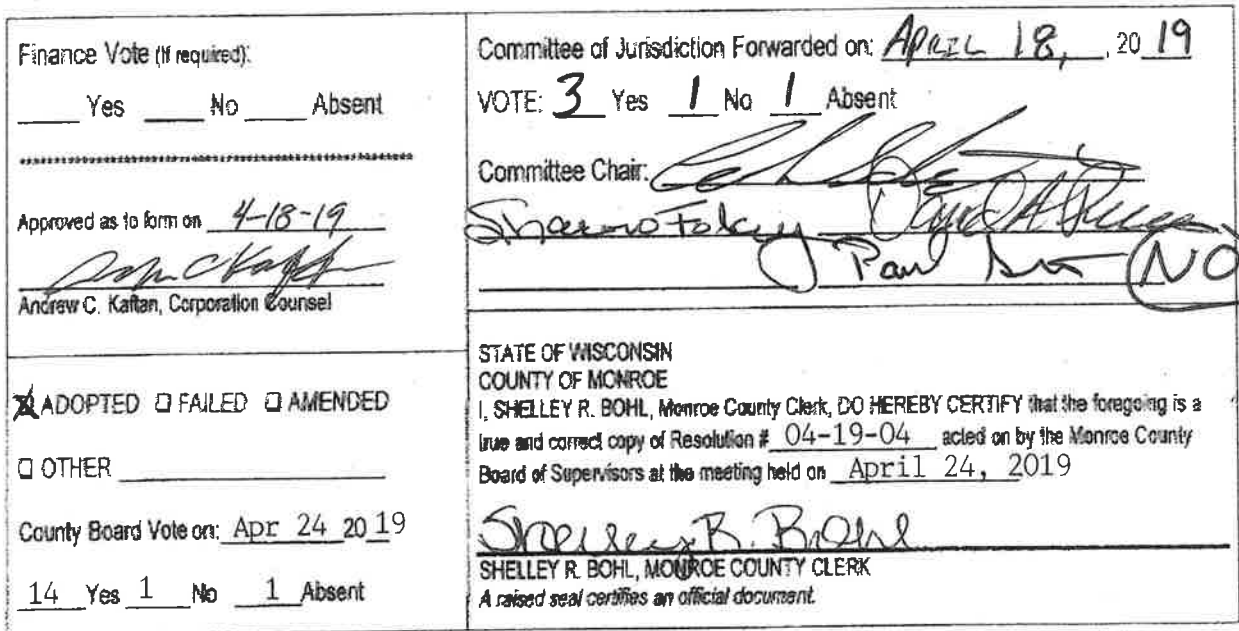 Finance Vote (If required):
____ Yes ____ No ____ Absent
Approved as to form on 4-18-19
Andrew C. Kaftan, Corporation Counsel
☒ ADOPTED ☐ FAILED ☐ AMENDED
☐ OTHER ____
County Board Vote on: Apr 24 20 19
14 Yes 1 No 1 Absent
Committee of Jurisdiction Forwarded on: APRIL 18, , 20 19
VOTE: 3 Yes 1 No 1 Absent
Committee Chair:
Sharon Folcey David A.
Paul NO
STATE OF WISCONSIN
COUNTY OF MONROE
I, SHELLEY R. BOHL, Monroe County Clerk, DO HEREBY CERTIFY that the foregoing is a
true and correct copy of Resolution # 04-19-04 acted on by the Monroe County
Board of Supervisors at the meeting held on April 24, 2019
Shelley R. Bohl
SHELLEY R. BOHL, MONROE COUNTY CLERK
A raised seal certifies an official document.